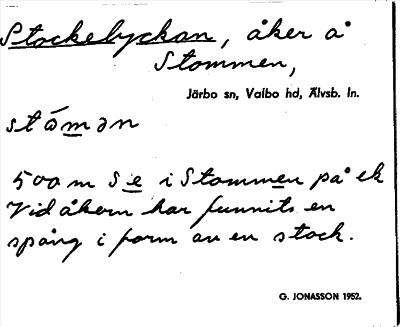 Stockelyckan, åker å
Stommen,
Järbo sn, Valbo hd, Älvsb. ln.
stómən
500 m S e i Stommen på ek
Vid åkern har funnits en
spång i form av en stock.
G. JONASSON 1952.